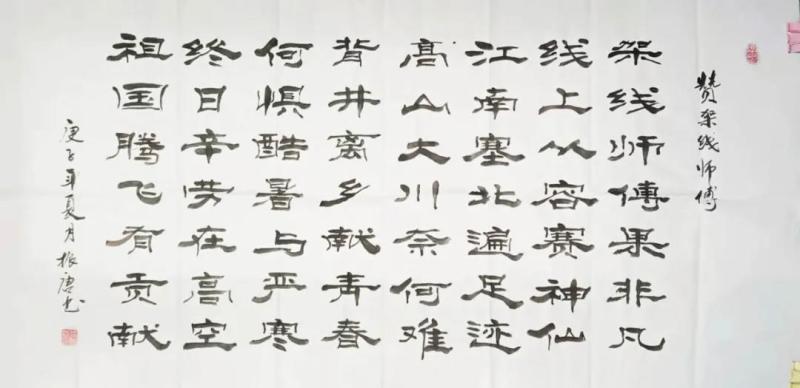 赞架线师傅
架线师傅果非凡
线上从容赛神仙
江南塞北遍足迹
高山大川奈何难
背井离乡献青春
何惧酷暑与严寒
终日辛劳在高空
祖国腾飞有贡献
庚子年夏月振唐书